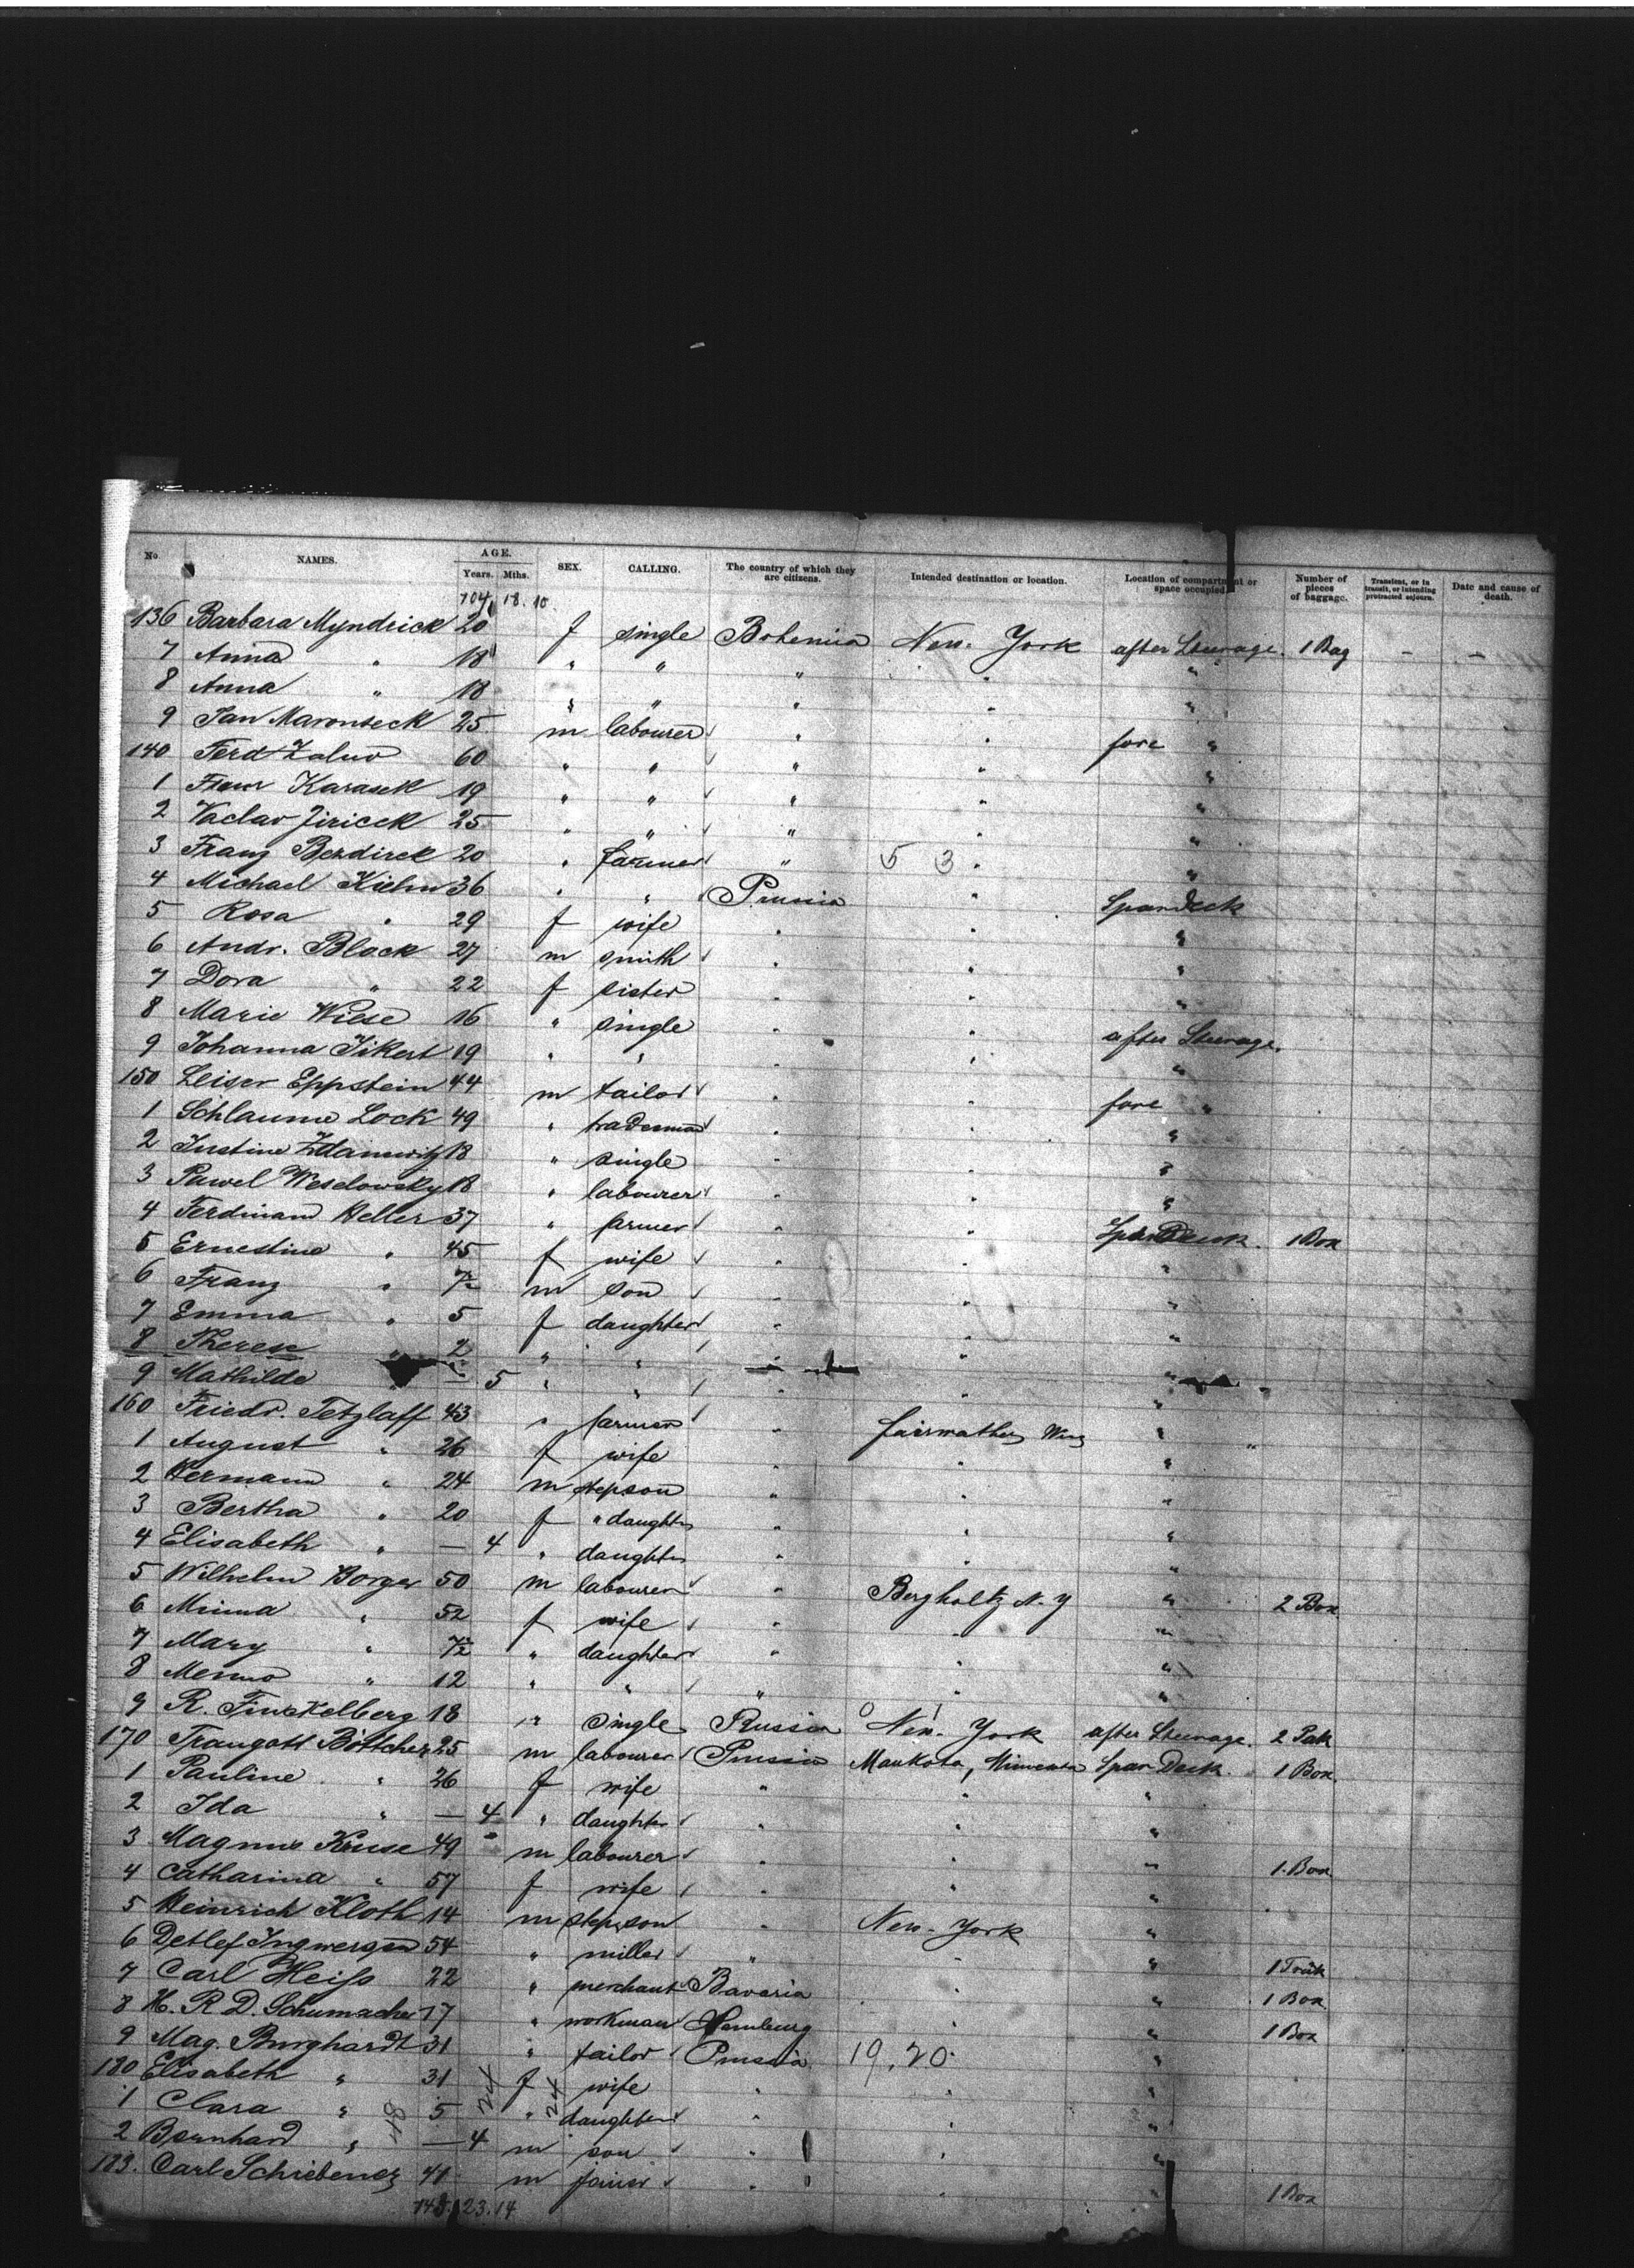 No. NAMES. AGE. SEX. CALLING. The country of which they are citizens. Intended destination or location. Location of compartment or space occupied. Number of pieces of baggage. Transient, or in transit, or intending protracted sojourn. Date and cause of death.
Years. Mths.
704, 18. 10.
136 Barbara Myndrick 20 f single Bohemia New-York after Steerage. 1 Bag - -
7 Anna " 18 " " " " "
8 Anna " 18 " " " " "
9 Jan Maronseck 25 m labourer " " fore "
140 Ferd Zaluv 60 " " " " "
1 Franz Karasek 19 " " " " "
2 Vaclav Jiricek 25 " " " " "
3 Franz Bezdirek 20 " farmer " 5 3 " "
4 Michael Kiehn 36 " " Prussia " Spardeck
5 Rosa " 29 f wife " " "
6 Andr. Block 27 m smith " " "
7 Dora " 22 f sister " " "
8 Marie Wiese 16 " single " " after Steerage.
9 Johanna Jikert 19 " " " " "
150 Leiser Eppstein 44 m tailor " " fore "
1 Schlaume Lock 49 " tradesman " " "
2 Justine 18 " single " " "
3 Pawel Weselowsky 18 " labourer " " "
4 Ferdinand Heller 37 " farmer " " Spar Deck. 1 Box
5 Ernestine " 45 f wife " " "
6 Franz " 7½ m son " " "
7 Emma " 5 f daughter " " "
8 Therese " 2 " " " " "
9 Mathilde " — 5 " " " " "
160 Friedr. Tetzlaff 43 " farmer " "
1 August " 26 f wife " " "
2 Hermann " 24 m stepson " " "
3 Bertha " 20 f " daughter " " "
4 Elisabeth " — 4 " daughter " " "
5 Wilhelm Borger 50 m labourer " Bergholtz N.Y " 2 Box
6 Minna " 52 f wife " " "
7 Mary " 7½ " daughter " " "
8 Menno " 12 " " " " "
9 R. Finckelberg 18 " single Russia New-York after Steerage. 2 Pak
170 Traugott Böttcher 25 m labourer Prussia Mankota, Minnesota Spar Deck. 1 Box.
1 Pauline " 26 f wife " " "
2 Ida " — 4 " daughter " " "
3 Magnus Kruse 49 m labourer " " " 1 Box
4 Catharina " 57 f wife " " "
5 Heinrich Kloth 14 m stepson " New-York "
6 Detlef Ingwersen 54 " miller " " " 1 Trunk
7 Carl Heiss 22 " merchant Bavaria " " 1 Box
8 H. R. D. Schumacher 17 " workman Hamburg " " 1 Box
9 Mag. Burghardt 31 " tailor Prussia 19,20 "
180 Elisabeth " 31 f wife " " "
1 Clara " 5 " daughter " " "
2 Bernhard " — 4 m son " " "
183. Carl Schriebenez 41 m joiner " " " 1 Box
48 24 24
745. 23. 14